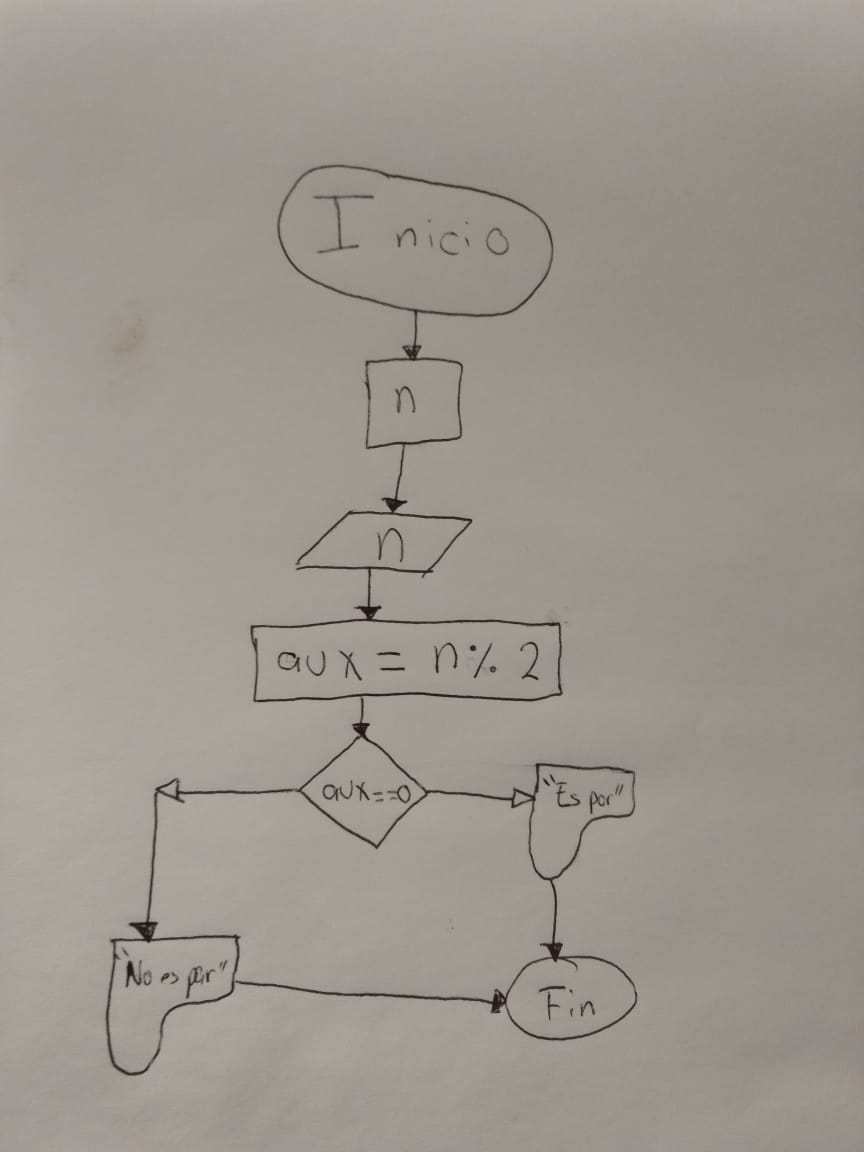 Inicio
n
n
aux = n % 2
aux==0
"Es par"
"No es par"
Fin